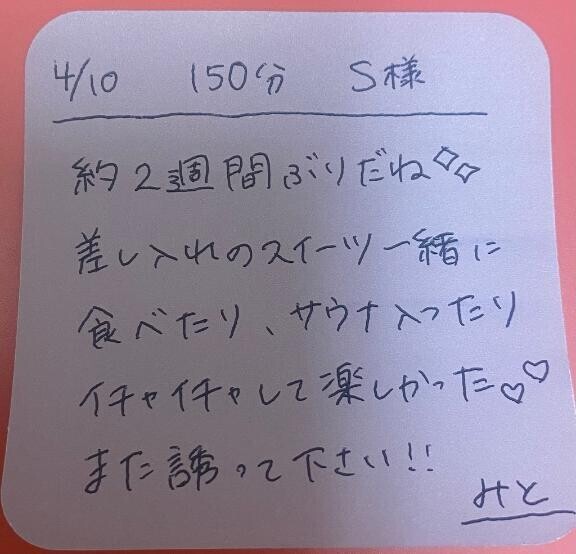 4/10 150分 S様
約2週間ぶりだね✧✧
差し入れのスイーツ一緒に
食べたり、サウナ入ったり
イチャイチャして楽しかった♡♡
また誘って下さい!!
みと